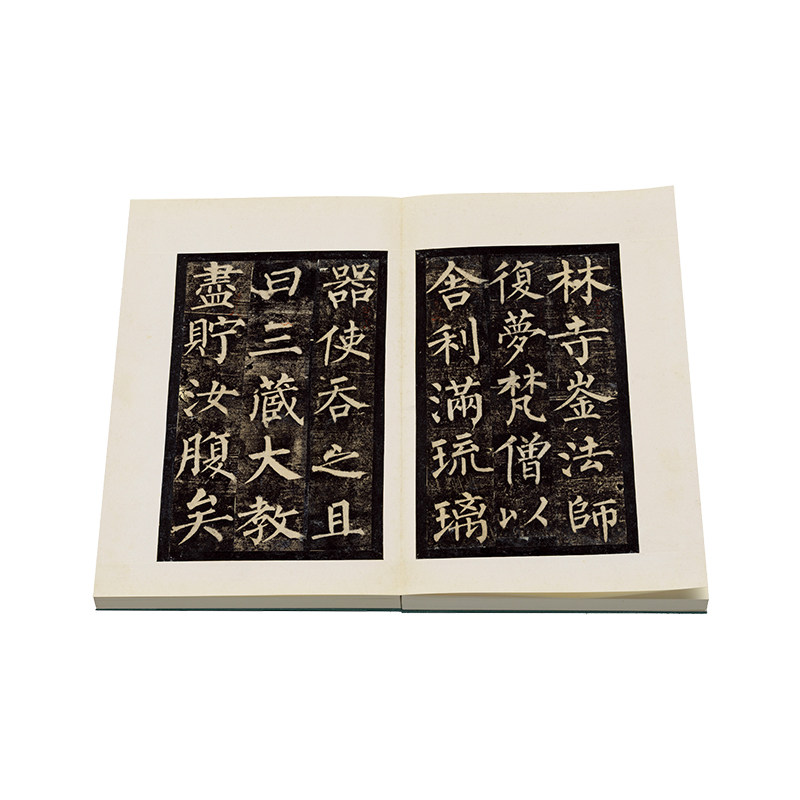 林寺崟法師
復夢梵僧以
舍利滿琉璃
器使吞之且
曰三藏大教
盡貯汝腹矣